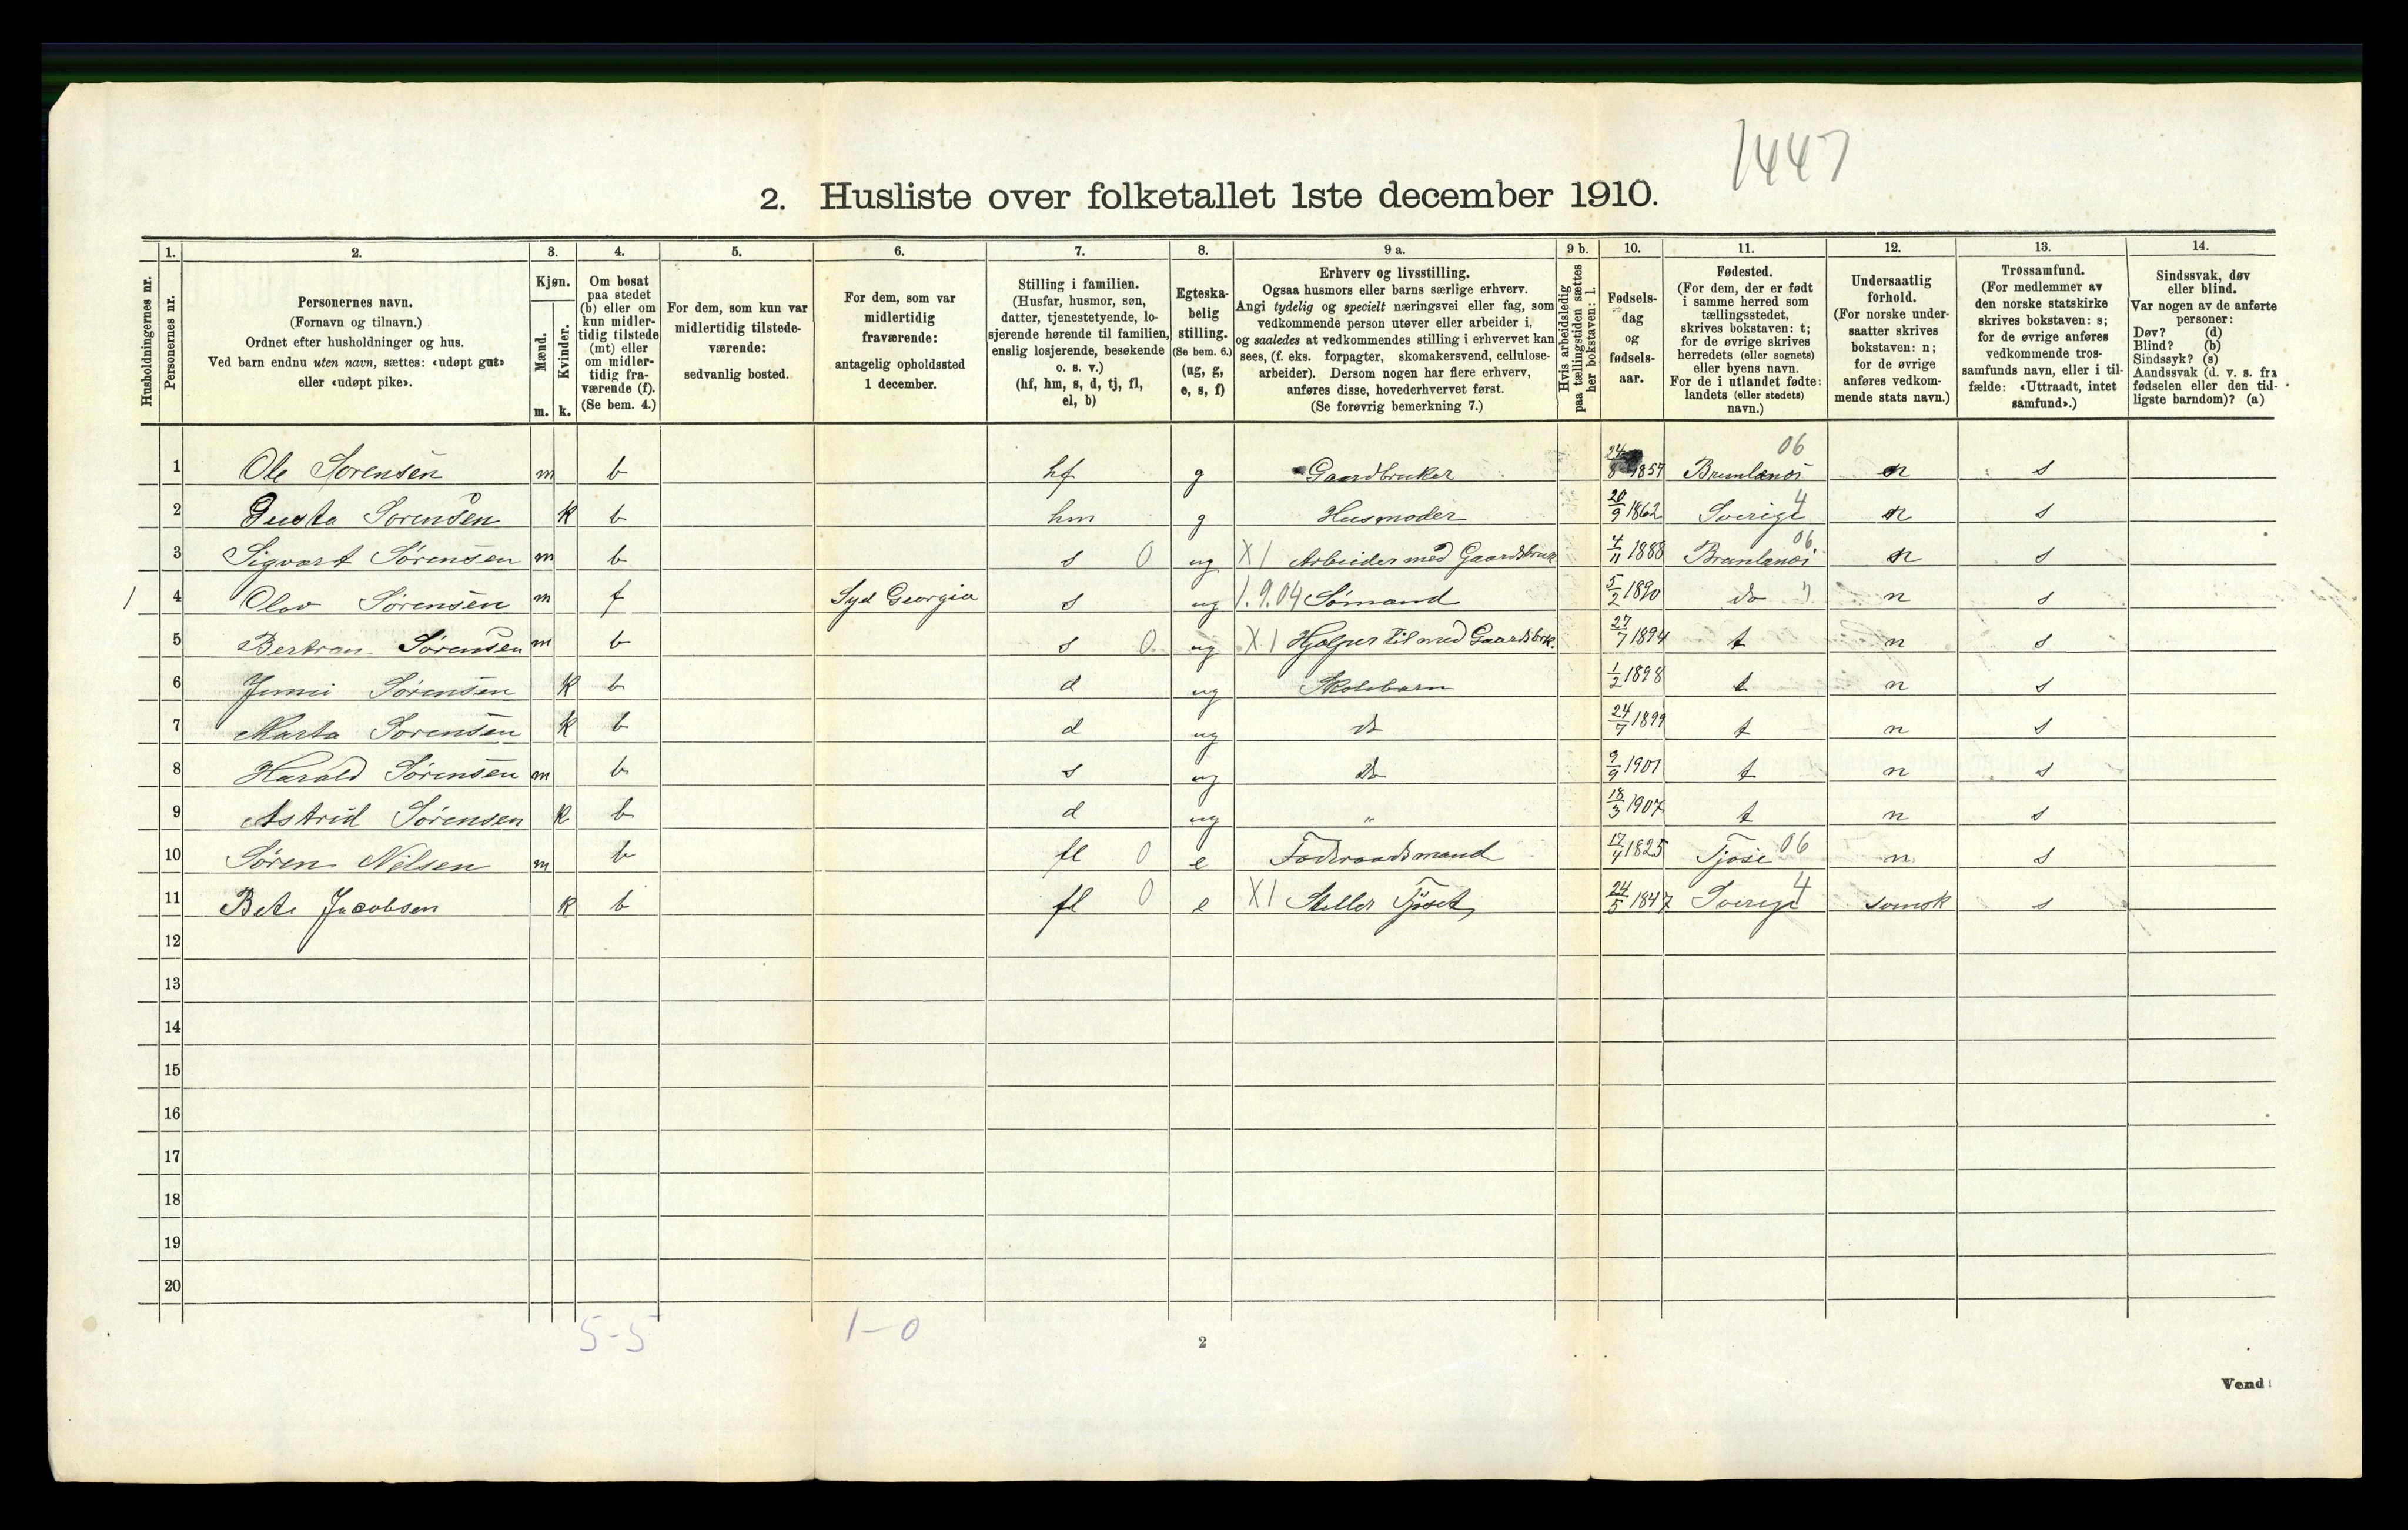 1447
2. Husliste over folketallet 1ste december 1910.
Husholdningernes nr.
1.
Personernes nr.
2.
Personernes navn.
(Fornavn og tilnavn.)
Ordnet efter husholdninger og hus.
Ved barn endnu uten navn, sættes: «udøpt gut»
eller «udøpt pike».
3.
Kjøn.
Mænd.
Kvinder.
m. k.
4.
Om bosat
paa stedet
(b) eller om
kun midler-
tidig tilstede
(mt) eller
om midler-
tidig fra-
værende (f).
(Se bem. 4.)
5.
For dem, som kun var
midlertidig tilstede-
værende:
sedvanlig bosted.
6.
For dem, som var
midlertidig
fraværende:
antagelig opholdssted
1 december.
7.
Stilling i familien.
(Husfar, husmor, søn,
datter, tjenestetyende, lo-
sjerende hørende til familien,
enslig losjerende, besøkende
o. s. v.)
(hf, hm, s, d, tj, fl,
el, b)
8.
Egteska-
belig
stilling.
(Se bem. 6.)
(ug, g,
e, s, f)
9 a.
Erhverv og livsstilling.
Ogsaa husmors eller barns særlige erhverv.
Angi tydelig og specielt næringsvei eller fag, som
vedkommende person utøver eller arbeider i,
og saaledes at vedkommendes stilling i erhvervet kan
sees, (f. eks. forpagter, skomakersvend, cellulose-
arbeider). Dersom nogen har flere erhverv,
anføres disse, hovederhvervet først.
(Se forøvrig bemerkning 7.)
9 b.
Hvis arbeidsledig
paa tællingstiden sættes
her bokstaven: l.
10.
Fødsels-
dag
og
fødsels-
aar.
11.
Fødested.
(For dem, der er født
i samme herred som
tællingsstedet,
skrives bokstaven: t;
for de øvrige skrives
herredets (eller sognets)
eller byens navn.
For de i utlandet fødte:
landets (eller stedets)
navn.)
12.
Undersaatlig
forhold.
(For norske under-
saatter skrives
bokstaven: n;
for de øvrige
anføres vedkom-
mende stats navn.)
13.
Trossamfund.
(For medlemmer av
den norske statskirke
skrives bokstaven: s;
for de øvrige anføres
vedkommende tros-
samfunds navn, eller i til-
fælde: «Uttraadt, intet
samfund».)
14.
Sindssvak, døv
eller blind.
Var nogen av de anførte
personer:
Døv? (d)
Blind? (b)
Sindssyk? (s)
Aandssvak (d. v. s. fra
fødselen eller den tid-
ligste barndom)? (a)
1 Ole Sørensen m b hf g Gaardbruker 24/8 1857 Brunlanes 06 n s
2 Gusta Sørensen k b hm g Husmoder 20/9 1862 Sverige 4 n s
3 Sigvart Sørensen m b s 0 ug X1 Arbeider med Gaardsbruk 4/11 1888 Brunlanes 06 n s
1 4 Olav Sørensen m f Syd Georgia s ug 1.9.04 Sømand 5/2 1890 do " n s
5 Bertran Sørensen m b s 0 ug X1 Hjælper til med Gaardsbrk. 27/7 1894 t n s
6 Jenni Sørensen k b d ug Skolebarn 1/2 1898 t n s
7 Marta Sørensen k b d ug do 24/7 1899 t n s
8 Harald Sørensen m b s ug Do 9/9 1901 t n s
9 Astrid Sørensen k b d ug " 18/3 1907 t n s
10 Søren Nilsen m b fl 0 e Føderaadsmand 17/4 1825 Tjøse 06 n s
11 Bete Jacobsen k b fl 0 e X1 Steller Fjøset, 24/5 1847 Sverige 4 svensk s
12
13
14
15
16
17
18
19
20
5-5 1-0
2
Vend!